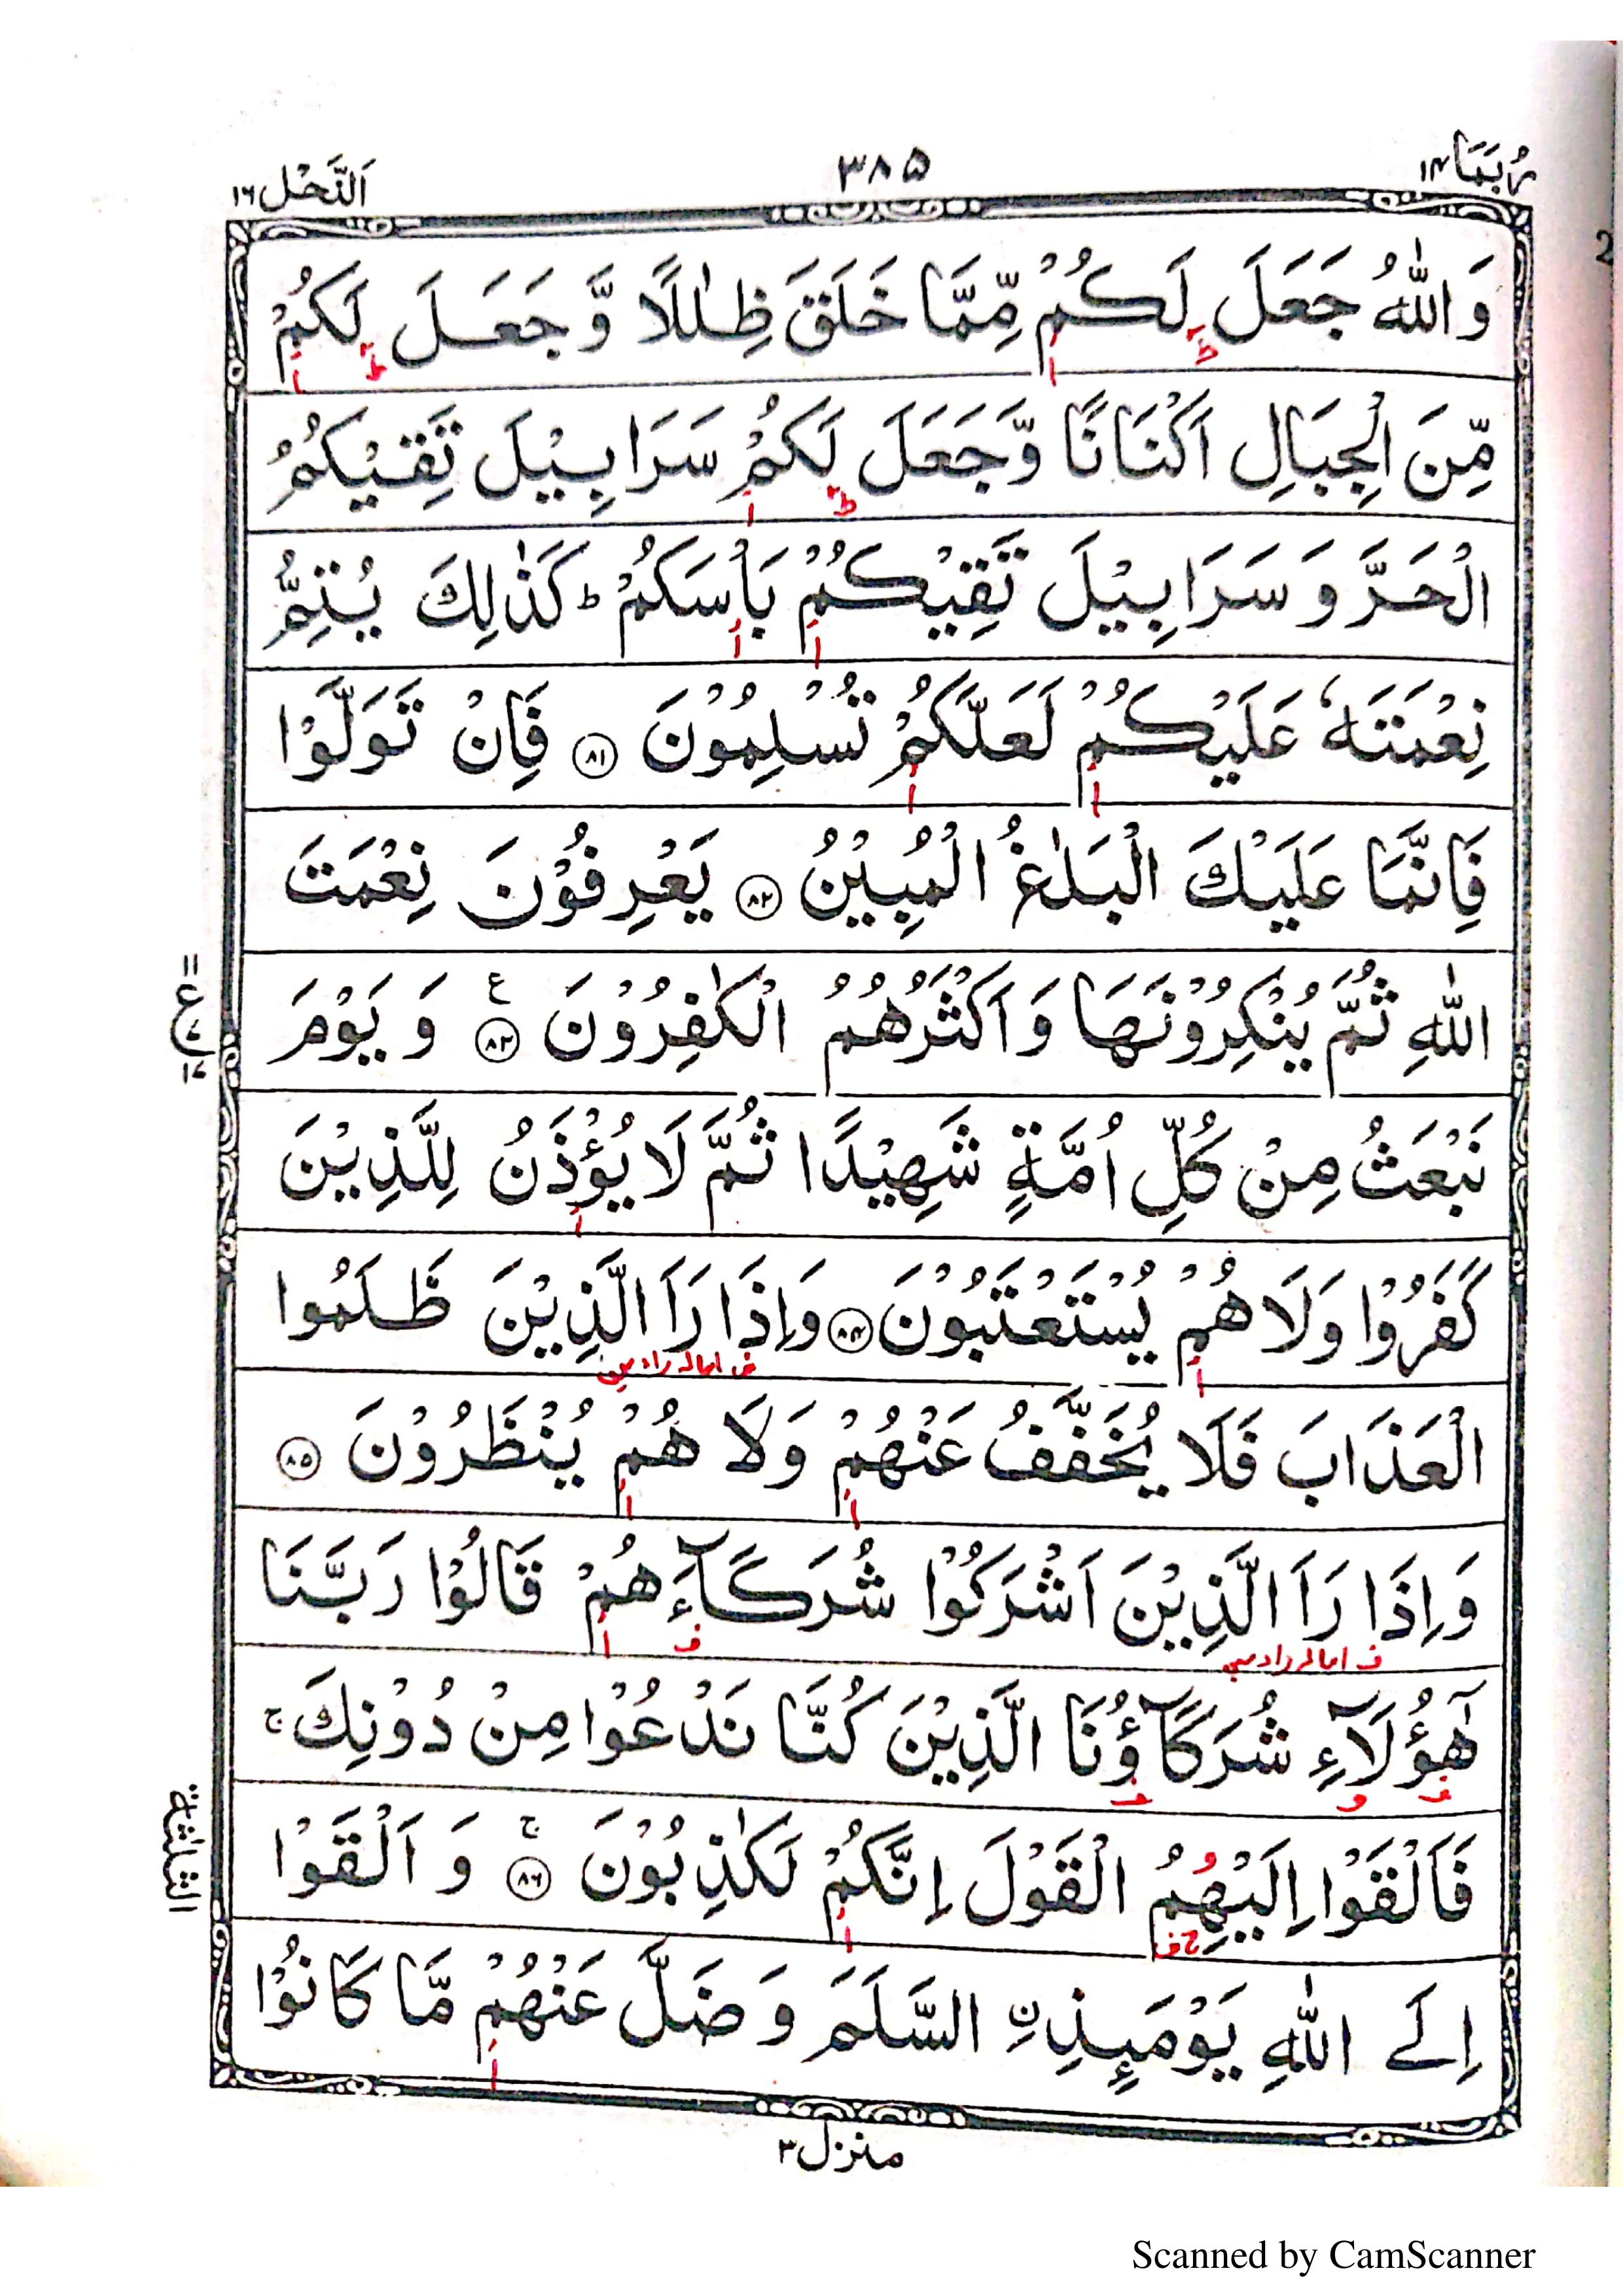 رُبَمَا ١٤
٣٨٥
اَلنَّحْل ١٦
وَاللّٰهُ جَعَلَ لَكُمْ مِّمَّا خَلَقَ ظِلٰلًا وَّ جَعَلَ لَكُمْ
مِّنَ الْجِبَالِ اَكْنَانًا وَّجَعَلَ لَكُمْ سَرَابِيْلَ تَقِيْكُمُ
الْحَرَّ وَ سَرَابِيْلَ تَقِيْكُمْ بَاْسَكُمْ ؕ كَذٰلِكَ يُتِمُّ
نِعْمَتَهٗ عَلَيْكُمْ لَعَلَّكُمْ تُسْلِمُوْنَ ﴿٨١﴾ فَاِنْ تَوَلَّوْا
فَاِنَّمَا عَلَيْكَ الْبَلٰغُ الْمُبِيْنُ ﴿٨٢﴾ يَعْرِفُوْنَ نِعْمَتَ
اللّٰهِ ثُمَّ يُنْكِرُوْنَهَا وَ اَكْثَرُهُمُ الْكٰفِرُوْنَ ﴿٨٣﴾ ع وَ يَوْمَ
نَبْعَثُ مِنْ كُلِّ اُمَّةٍ شَهِيْدًا ثُمَّ لَا يُؤْذَنُ لِلَّذِيْنَ
كَفَرُوْا وَلَا هُمْ يُسْتَعْتَبُوْنَ ﴿٨٤﴾ وَاِذَا رَاَ الَّذِيْنَ ظَلَمُوا
الْعَذَابَ فَلَا يُخَفَّفُ عَنْهُمْ وَلَا هُمْ يُنْظَرُوْنَ ﴿٨٥﴾
وَاِذَا رَاَ الَّذِيْنَ اَشْرَكُوْا شُرَكَآءَهُمْ قَالُوْا رَبَّنَا
هٰٓؤُلَآءِ شُرَكَآؤُنَا الَّذِيْنَ كُنَّا نَدْعُوْا مِنْ دُوْنِكَ ۚ
فَاَلْقَوْا اِلَيْهِمُ الْقَوْلَ اِنَّكُمْ لَكٰذِبُوْنَ ﴿٨٦﴾ ۚ وَ اَلْقَوْا
اِلَى اللّٰهِ يَوْمَئِذِ ِۨ السَّلَمَ وَ ضَلَّ عَنْهُمْ مَّا كَانُوْا
الثلثة
منزل ٣
Scanned by CamScanner